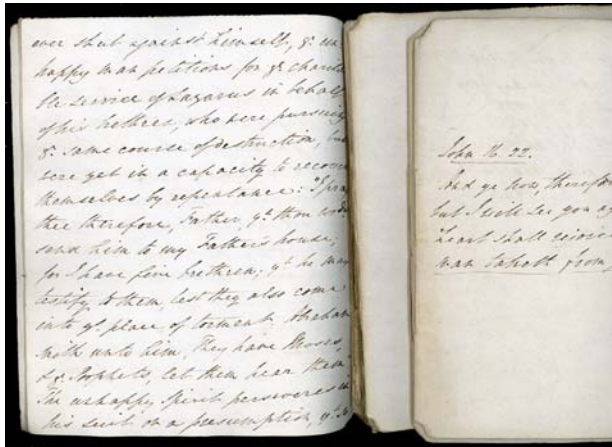 ever shut against himself, yᵉ un-
happy man petitions for yᵉ charita
ble service of Lazarus in behalf
of his brethren, who were pursuing
yᵉ same course of destruction, but
were yet in a capacity to recover
themselves by repentance: "I pray
thee therefore, Father, yᵗ thou wouldst
send him to my Father's house;
for I have five brethren; yᵗ he may
testify to them, lest they also come
into yˢ place of torment; Abraham
saith unto him, They have Moses,
& yᵉ Prophets, let them hear them."
The unhappy Spirit perseveres in
his suit on a presumption, yᵗ
John 16. 22.
And ye now, therefore
but I will see you ag
heart shall rejoice
man taketh from